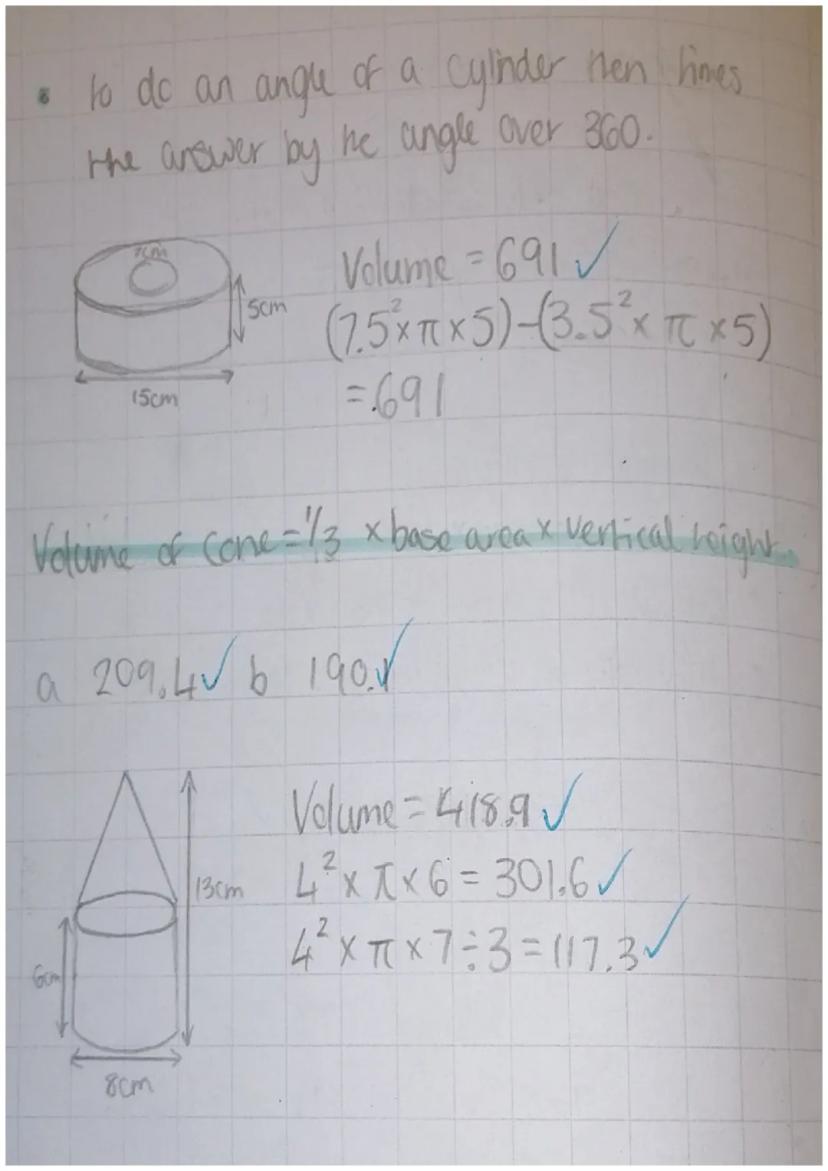 • to do an angle of a cylinder then times
the answer by the angle over 360.
7cm
5cm
15cm
Volume = 691 ✓
(7.5² × π × 5) - (3.5² × π × 5)
= 691
Volume of Cone = 1/3 × base area × vertical height.
a 209.4 ✓ b 190.1 ✓
13cm
6cm
8cm
Volume = 418.9 ✓
4² × π × 6 = 301.6 ✓
4² × π × 7 ÷ 3 = 117.3 ✓